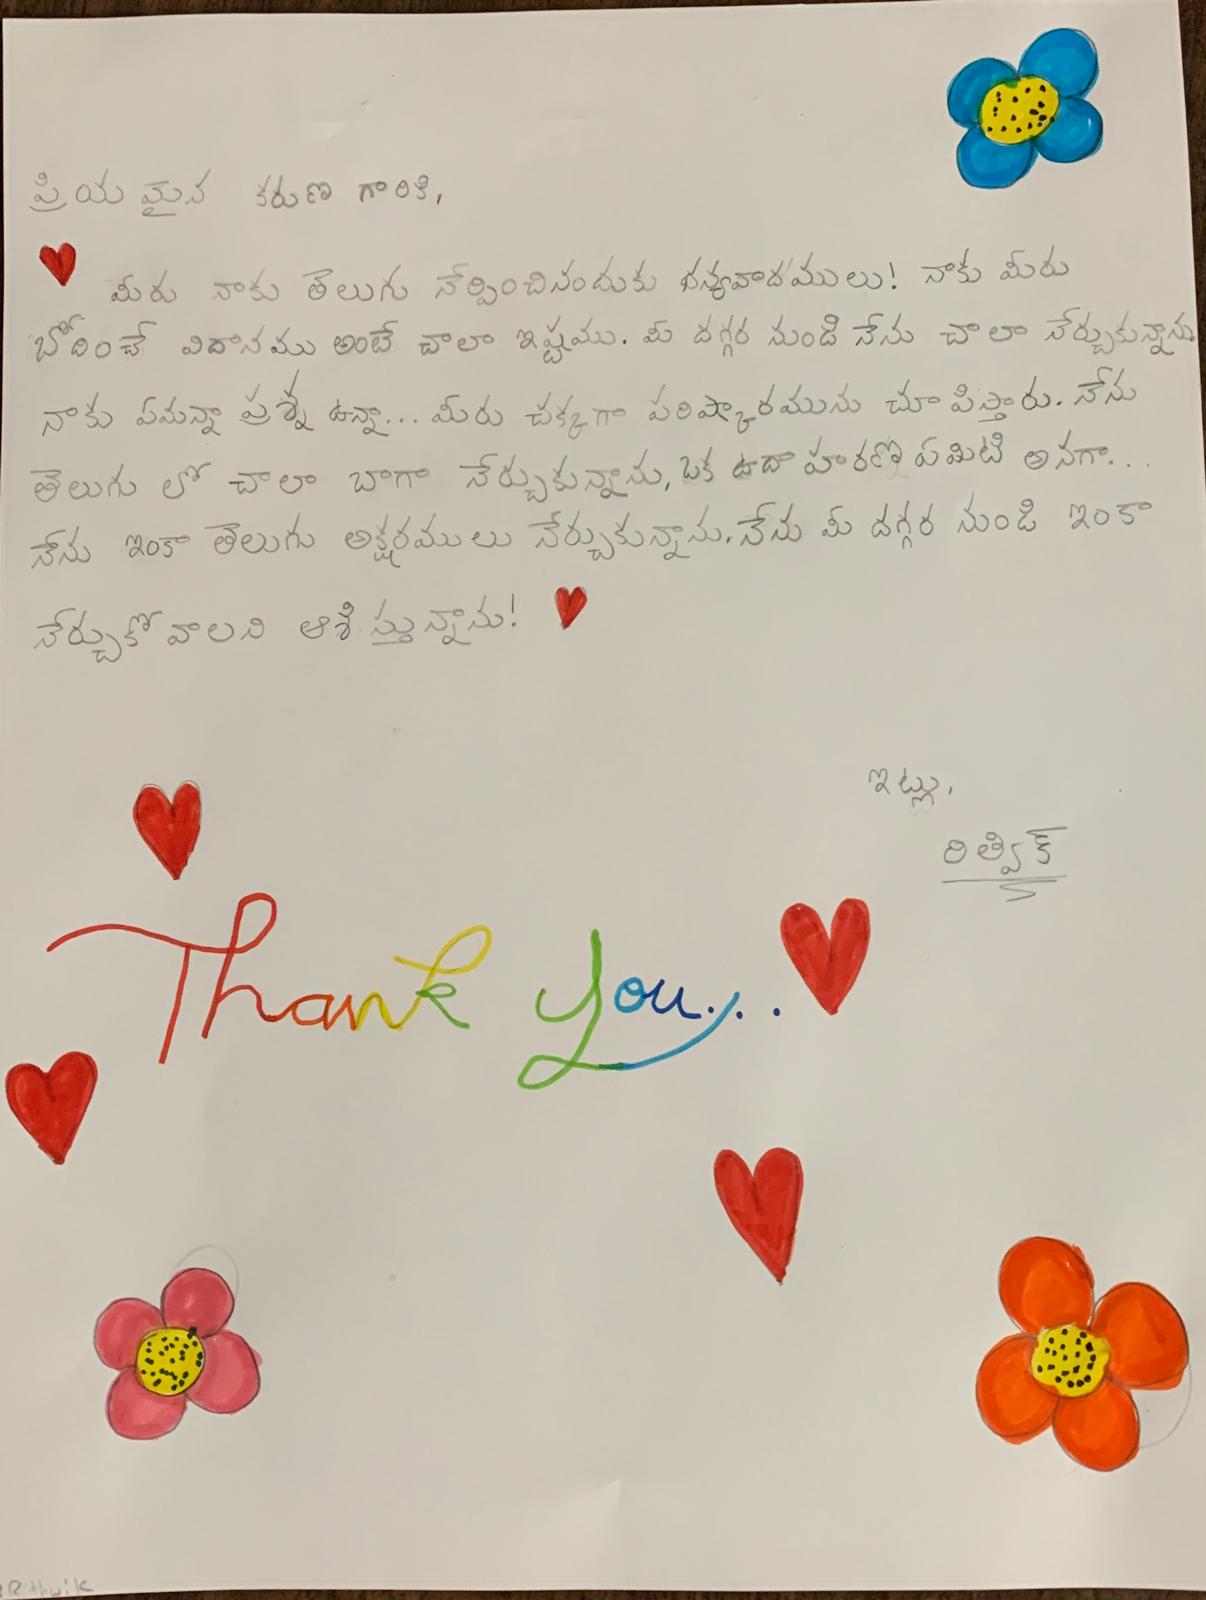 ప్రియ మైన కరుణ గారికి,
మీరు నాకు తెలుగు నేర్పించినందుకు ధన్యవాదములు! నాకు మీరు
బోదించే విదానము అంటే చాలా ఇష్టము. మీ దగ్గర నుండి నేను చాలా నేర్చుకున్నాను
నాకు ఏమన్నా ప్రశ్న ఉన్నా... మీరు చక్కగా పరిష్కారమును చూపిస్తారు. నేను
తెలుగు లో చాలా బాగా నేర్చుకున్నాను, ఒక ఉదా హరణ ఏమిటి అనగా...
నేను ఇంకా తెలుగు అక్షరములు నేర్చుకున్నాను. నేను మీ దగ్గర నుండి ఇంకా
నేర్చుకోవాలని ఆశిస్తున్నాను!
ఇట్లు,
రిత్విక్
Thank you...
Rithwik